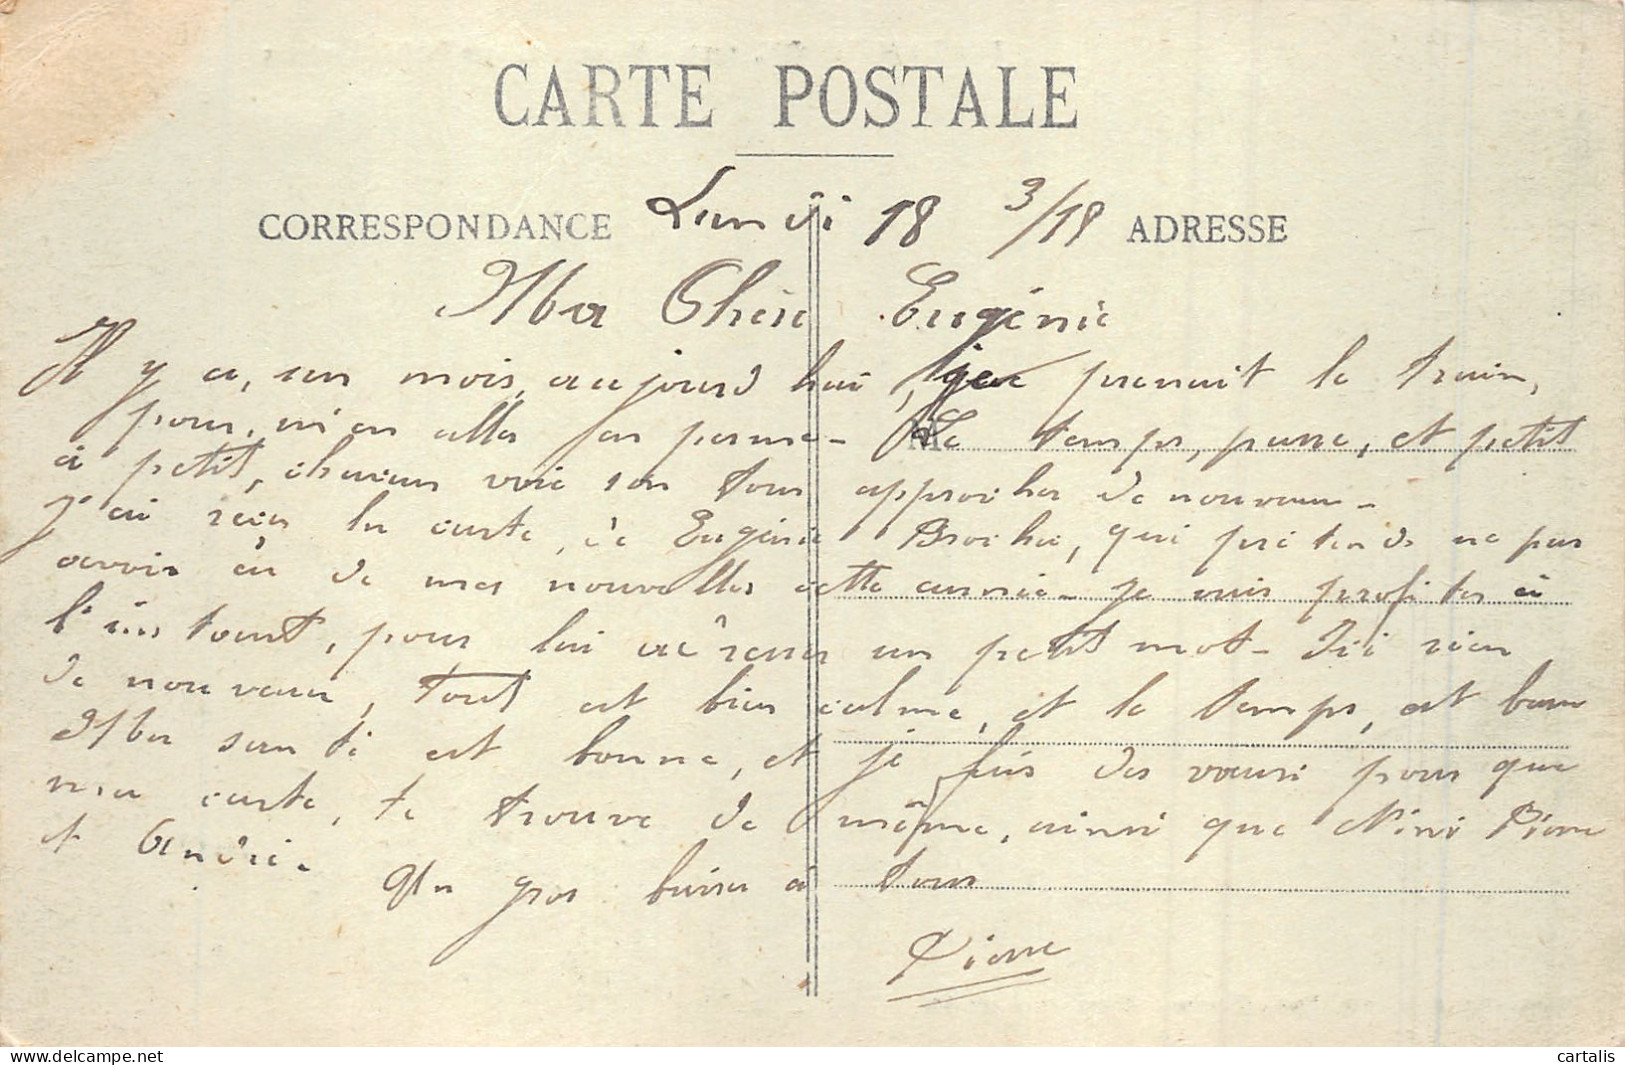 CARTE POSTALE
CORRESPONDANCE Lundi 18 3/18 ADRESSE
Ma Chère Eugénie
Il y a, un mois, aujourd hui, je prenait le train,
pour, m'en aller en perme - Le temps, passe, et petit
à petit, chacun voie son tour approcher de nouveau -
J'ai reçu la carte, de Eugénie Broche, qui prétends ne pas
avoir eu de mes nouvelles cette année - je vais profiter à
l'instant, pour lui adresser un petit mot - Ici rien
de nouveau, Tout est bien calme, et le temps, est beau
Ma santé est bonne, et je fais des vœux pour que
ma carte, te trouve de même, ainsi que Nini Pierre
et André -
Un gros baiser à tous
Pierre
cartalis
www.delcampe.net